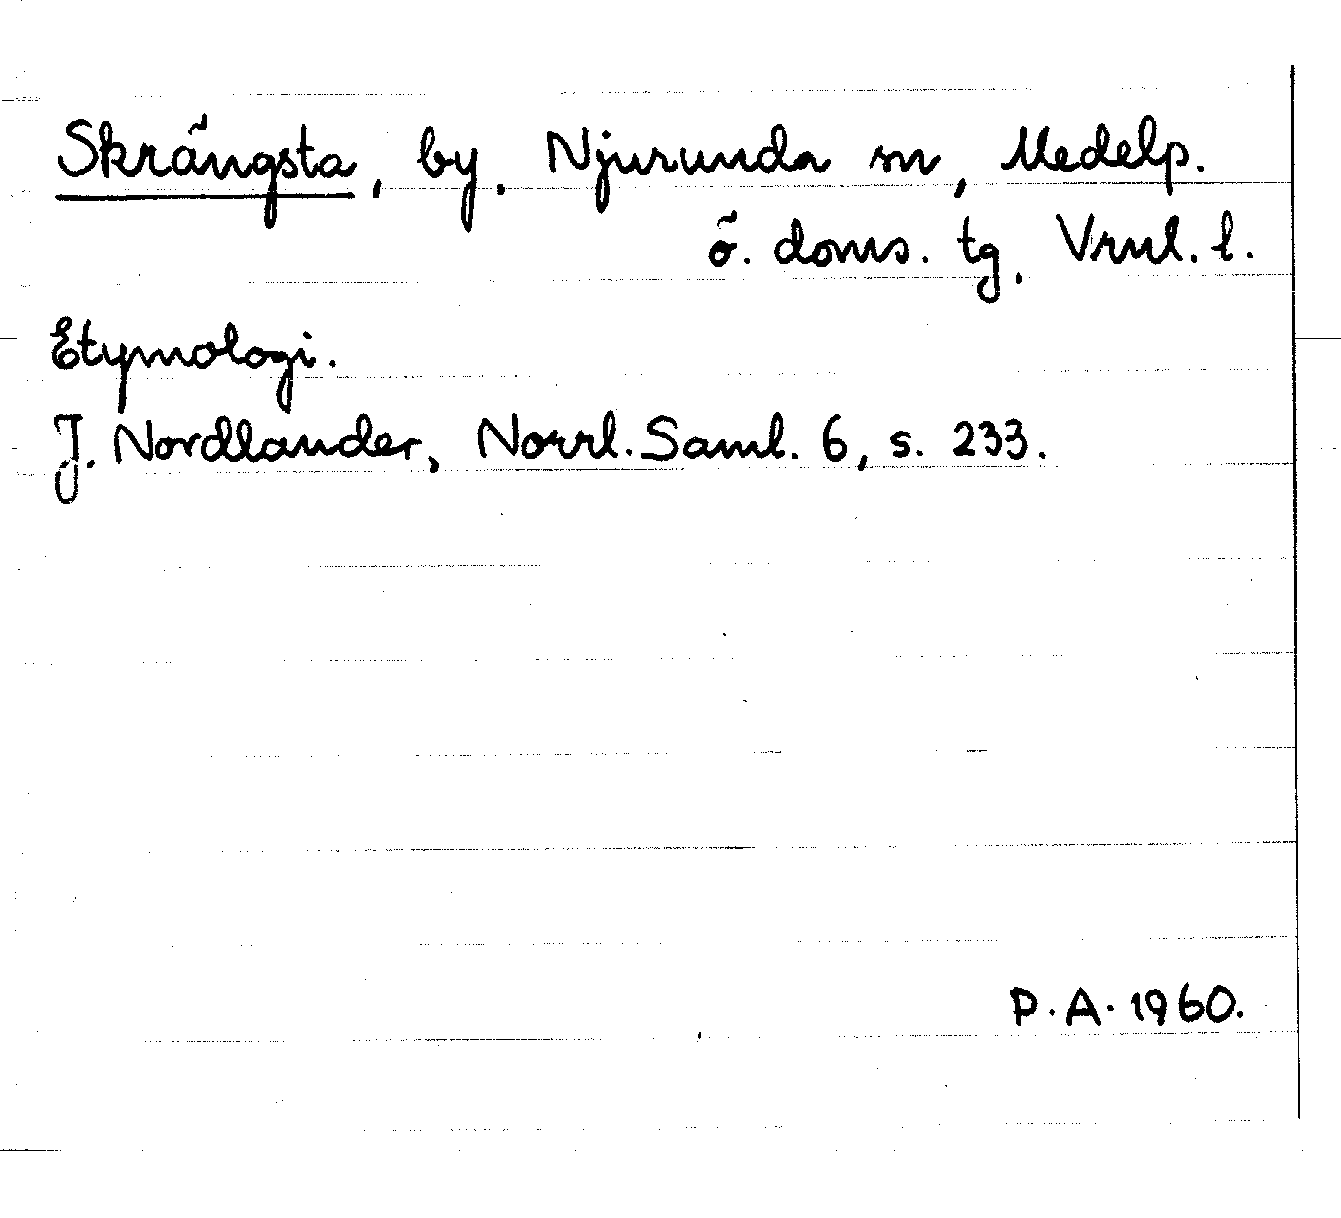 Skrängsta, by. Njurunda sn, Medelp.
ö. doms. tg. Vrnl. l.
Etymologi.
J. Nordlander, Norrl. Saml. 6, s. 233.
P.A. 1960.